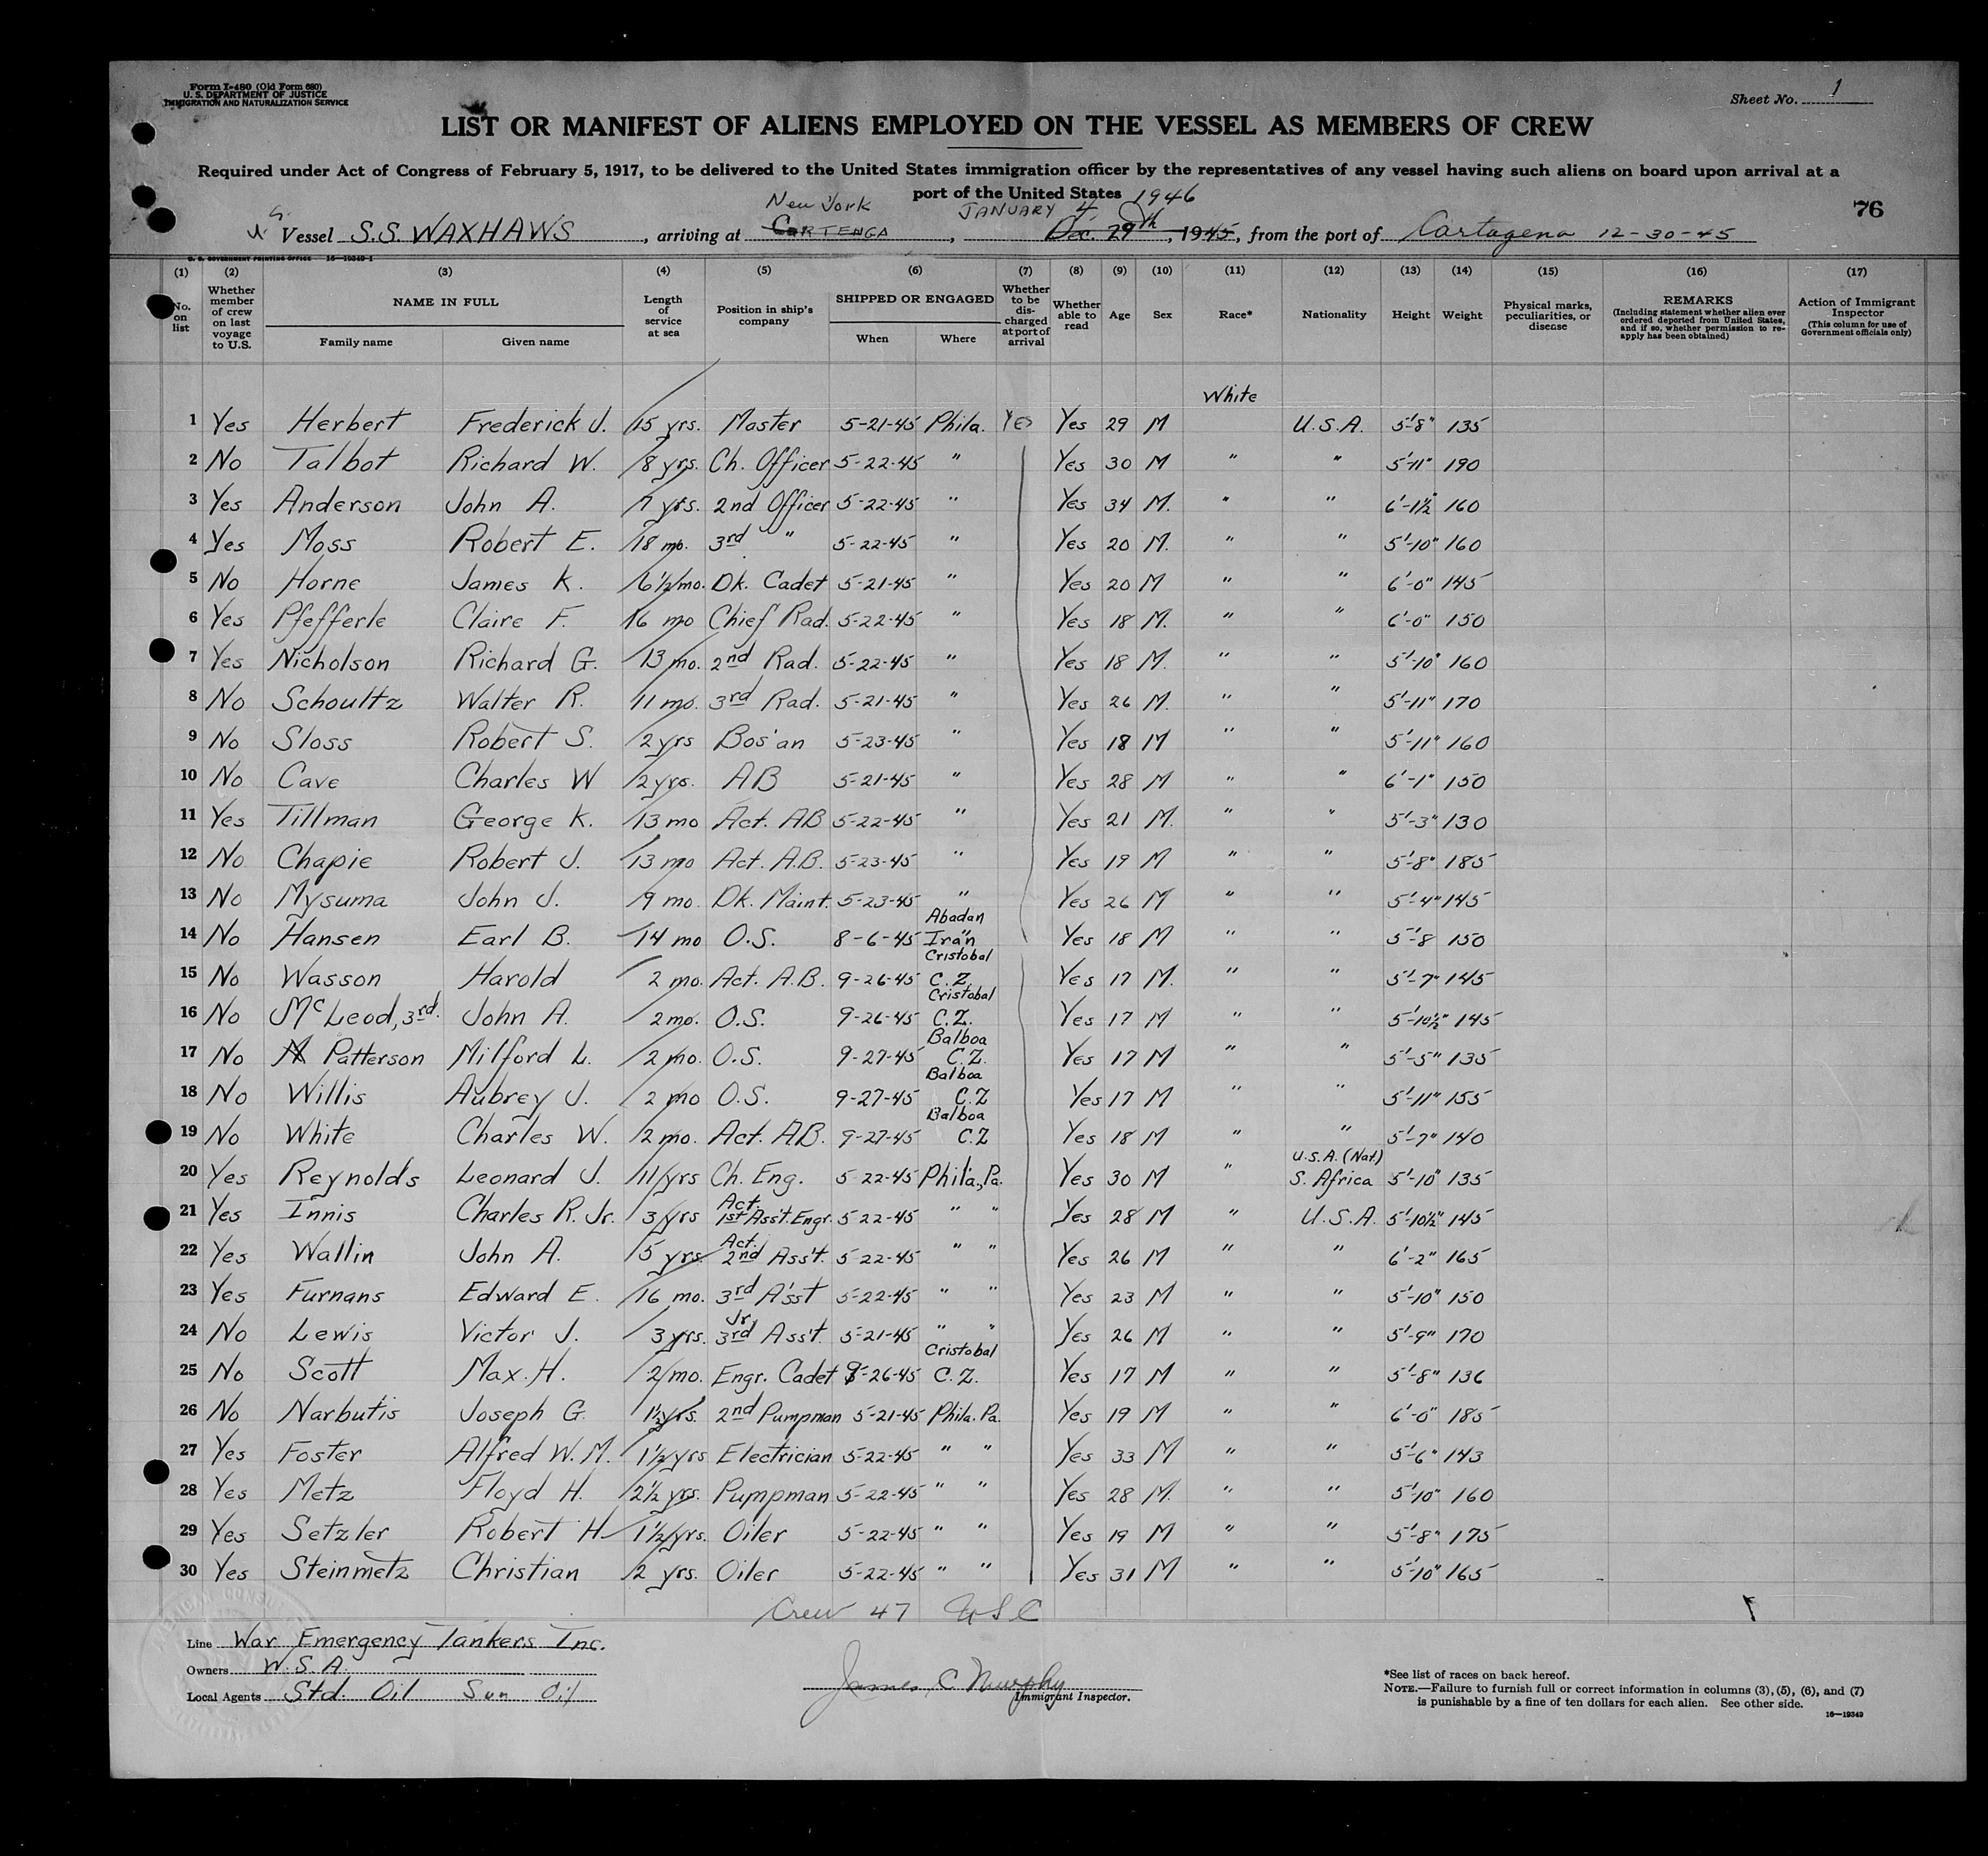 Form I-480 (Old Form 680)
U. S. DEPARTMENT OF JUSTICE
IMMIGRATION AND NATURALIZATION SERVICE
Sheet No. 1
LIST OR MANIFEST OF ALIENS EMPLOYED ON THE VESSEL AS MEMBERS OF CREW
Required under Act of Congress of February 5, 1917, to be delivered to the United States immigration officer by the representatives of any vessel having such aliens on board upon arrival at a
port of the United States
New York JANUARY 4, 1946
76
Vessel S.S. WAXHAWS, arriving at CARTENGA, Dec. 29th, 1945, from the port of Cartagena 12-30-45
U. S. GOVERNMENT PRINTING OFFICE 16—19349-1
(1) (2) (3) (4) (5) (6) (7) (8) (9) (10) (11) (12) (13) (14) (15) (16) (17)
No. on list
Whether member of crew on last voyage to U.S.
NAME IN FULL
Family name Given name
Length of service at sea
Position in ship's company
SHIPPED OR ENGAGED
When Where
Whether to be discharged at port of arrival
Whether able to read
Age
Sex
Race*
Nationality
Height
Weight
Physical marks, peculiarities, or disease
REMARKS
(Including statement whether alien ever ordered deported from United States, and if so, whether permission to reapply has been obtained)
Action of Immigrant Inspector
(This column for use of Government officials only)
White
1 Yes Herbert Frederick J. 15 yrs. Master 5-21-45 Phila. Yes Yes 29 M U.S.A. 5'-8" 135
2 No Talbot Richard W. 8 yrs. Ch. Officer 5-22-45 " Yes 30 M " " 5'-11" 190
3 Yes Anderson John A. 7 yrs. 2nd Officer 5-22-45 " Yes 34 M. " " 6'-1½" 160
4 Yes Moss Robert E. 18 mo. 3rd " 5-22-45 " Yes 20 M. " " 5'-10" 160
5 No Horne James K. 6½ mo. Dk. Cadet 5-21-45 " Yes 20 M " " 6'-0" 145
6 Yes Pfefferle Claire F. 16 mo Chief Rad. 5-22-45 " Yes 18 M. " " 6'-0" 150
7 Yes Nicholson Richard G. 13 mo. 2nd Rad. 5-22-45 " Yes 18 M. " " 5'-10" 160
8 No Schoultz Walter R. 11 mo. 3rd Rad. 5-21-45 " Yes 26 M. " " 5'-11" 170
9 No Sloss Robert S. 2 yrs Bos'an 5-23-45 " Yes 18 M " " 5'-11" 160
10 No Cave Charles W 2 yrs. AB 5-21-45 " Yes 28 M " " 6'-1" 150
11 Yes Tillman George K. 13 mo Act. AB 5-22-45 " Yes 21 M. " " 5'-3" 130
12 No Chapie Robert J. 13 mo Act. A.B. 5-23-45 " Yes 19 M " " 5'-8" 185
13 No Mysuma John J. 9 mo. Dk. Maint. 5-23-45 " Yes 26 M " " 5'-4" 145
14 No Hansen Earl B. 14 mo O.S. 8-6-45 Abadan Iran Yes 18 M " " 5'-8 150
15 No Wasson Harold 2 mo. Act. A.B. 9-26-45 Cristobal C.Z. Yes 17 M. " " 5'-7" 145
16 No McLeod, 3rd. John A. 2 mo. O.S. 9-26-45 Cristobal C.Z. Yes 17 M " " 5'-10½" 145
17 No Patterson Milford L. 2 mo. O.S. 9-27-45 Balboa C.Z. Yes 17 M " " 5'-5" 135
18 No Willis Aubrey J. 2 mo O.S. 9-27-45 Balboa C.Z Yes 17 M " " 5'-11" 155
19 No White Charles W. 2 mo. Act. AB. 9-27-45 Balboa C.Z Yes 18 M " " 5'-7" 140
20 Yes Reynolds Leonard J. 11 yrs Ch. Eng. 5-22-45 Phila., Pa. Yes 30 M " U.S.A. (Nat.) S. Africa 5'-10" 135
21 Yes Innis Charles R. Jr. 3 yrs Act. 1st Ass't. Engr. 5-22-45 " " Yes 28 M " U.S.A. 5'-10½" 145
22 Yes Wallin John A. 5 yrs. Act. 2nd Ass't. 5-22-45 " " Yes 26 M " " 6'-2" 165
23 Yes Furnans Edward E. 16 mo. 3rd A'sst 5-22-45 " " Yes 23 M " " 5'-10" 150
24 No Lewis Victor J. 3 yrs. Jr. 3rd Ass't. 5-21-45 " " Yes 26 M " " 5'-9" 170
25 No Scott Max. H. 2 mo. Engr. Cadet 9-26-45 Cristobal C.Z. Yes 17 M " " 5'-8" 136
26 No Narbutis Joseph G. 1½ yrs. 2nd Pumpman 5-21-45 Phila. Pa. Yes 19 M " " 6'-0" 185
27 Yes Foster Alfred W. M. 1½ yrs Electrician 5-22-45 " " Yes 33 M " " 5'-6" 143
28 Yes Metz Floyd H. 2½ yrs. Pumpman 5-22-45 " " Yes 28 M. " " 5'-10" 160
29 Yes Setzler Robert H 1½ yrs. Oiler 5-22-45 " " Yes 19 M " " 5'-8" 175
30 Yes Steinmetz Christian 2 yrs. Oiler 5-22-45 " " Yes 31 M " " 5'-10" 165
Crew 47 USC
Line War Emergency Tankers Inc.
Owners W.S.A.
Local Agents Std. Oil Sun Oil
James C Murphy
Immigrant Inspector.
*See list of races on back hereof.
NOTE.—Failure to furnish full or correct information in columns (3), (5), (6), and (7)
is punishable by a fine of ten dollars for each alien. See other side.
16—19349